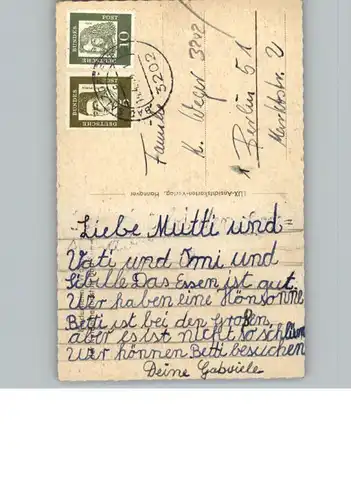 DEUTSCHE
BUNDES
POST
10
DEUTSCHE
BUNDES
POST
3202
Familie
K. Weger
Berlin 51
LUX-Ansichtskarten-Verlag, Hannover
Liebe Mutti und
Vati und Omi und
Sibille Das Essen ist gut.
Wer haben eine Hönsonne
Betti ist bei den großen
aber es ist nicht so schlimm
Wer hönnen Betti besuchen
Deine Gabriele